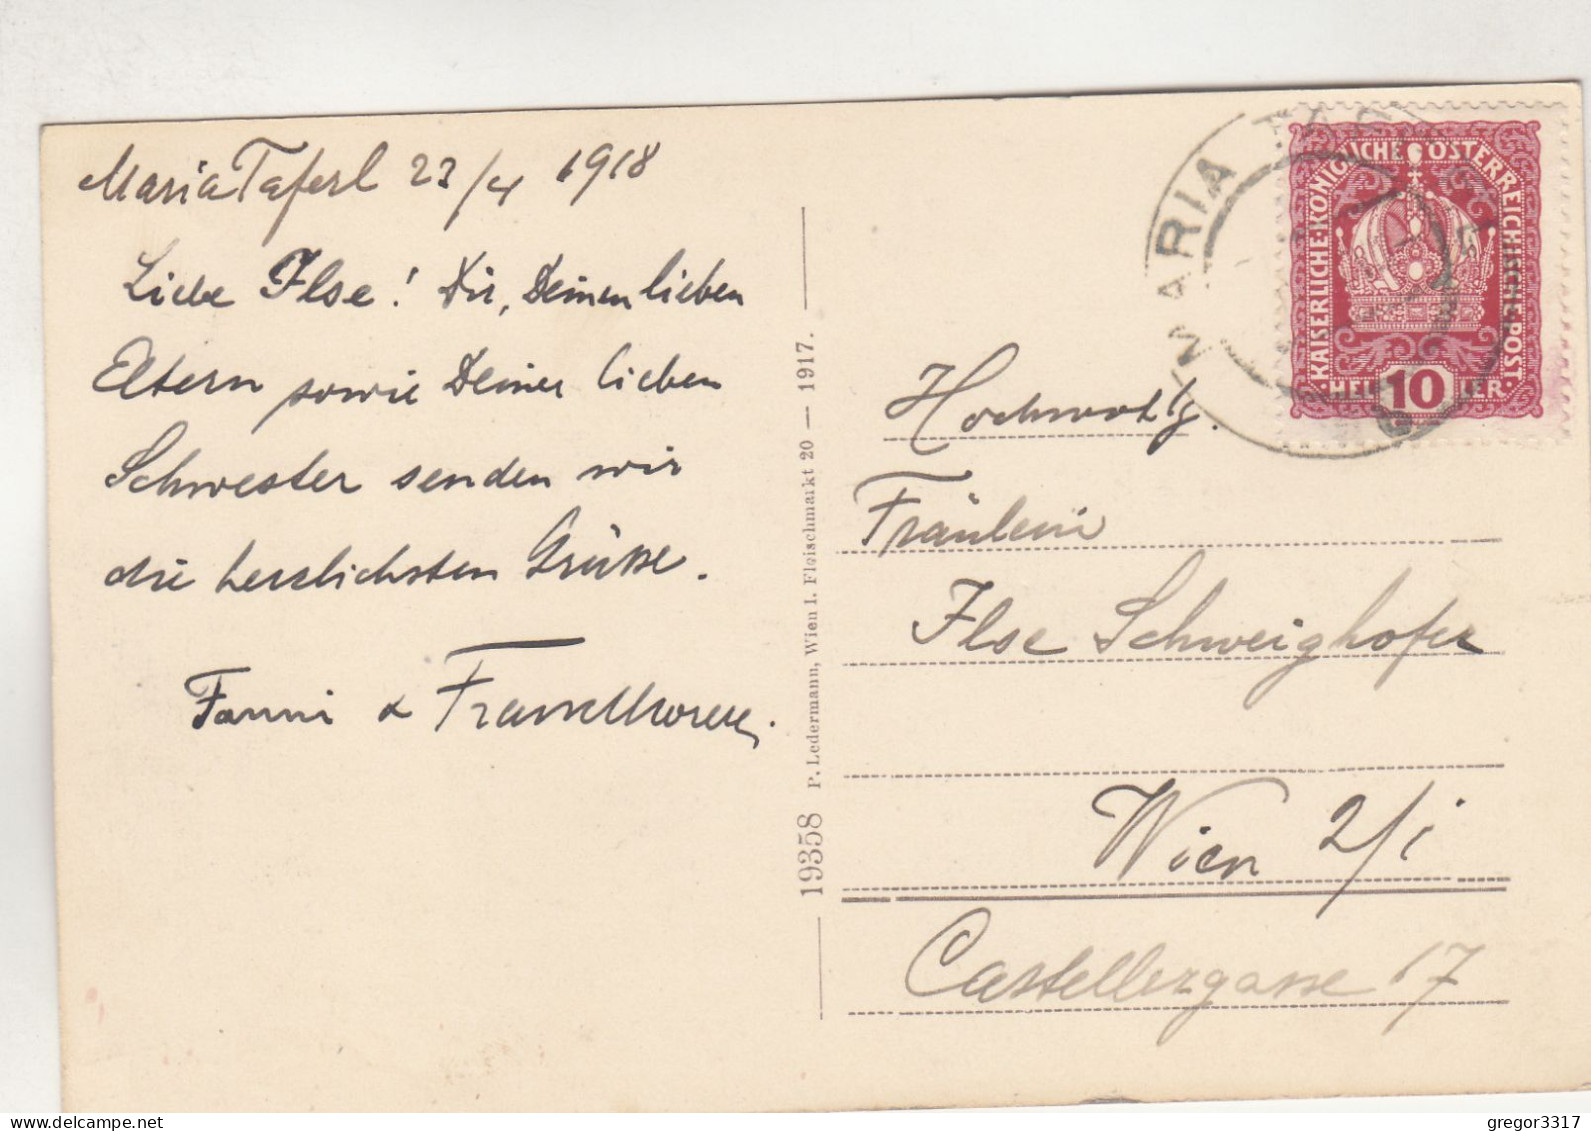 Maria Taferl 23/4 1918
Liebe Ilse! Dir, Deinen lieben
Eltern sowie Deiner lieben
Schwester senden wir
die herzlichsten Grüsse.
Fanni &
19358 P. Ledermann, Wien I. Fleischmarkt 20 — 1917.
MARIA TAF
KAISERLICHE·KÖNIGLICHE ÖSTERREICHISCHE·POST
HELLER 10
Hochwohlg.
Fräulein
Ilse Schweighofer
Wien 2/i
Castellezgasse 17
gregor3317
delcampe.net